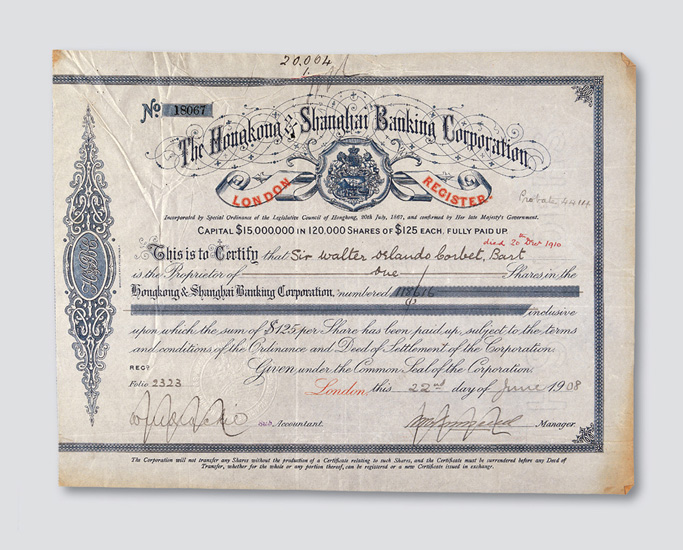 20,004
No 18067
The Hongkong & Shanghai Banking Corporation
LONDON REGISTER.
Probate 44114
Incorporated by Special Ordinance of the Legislative Council of Hongkong, 20th July, 1867, and confirmed by Her late Majesty's Government.
CAPITAL $15,000,000 IN 120,000 SHARES OF $125 EACH, FULLY PAID UP
died 20th Decr 1910
This is to Certify that Sir Walter Orlando Corbet, Bart
is the Proprietor of One / Shares in the
Hongkong & Shanghai Banking Corporation, numbered 118616
inclusive
upon which the sum of $125 per Share has been paid up, subject to the terms
and conditions of the Ordinance and Deed of Settlement of the Corporation.
REGR Given under the Common Seal of the Corporation.
Folio 2323
London, this 22nd day of June 1908
Accountant. Manager.
The Corporation will not transfer any Shares without the production of a Certificate relating to such Shares, and the Certificate must be surrendered before any Deed of
Transfer, whether for the whole or any portion thereof, can be registered or a new Certificate issued in exchange.